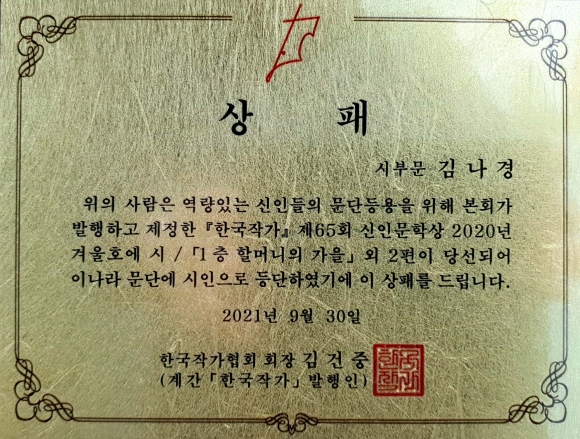 상 패
시부문 김나경
위의 사람은 역량있는 신인들의 문단등용을 위해 본회가
발행하고 제정한 『한국작가』 제65회 신인문학상 2020년
겨울호에 시 / 「1층 할머니의 가을」 외 2편이 당선되어
이나라 문단에 시인으로 등단하였기에 이 상패를 드립니다.
2021년 9월 30일
한국작가협회 회장 김건중
(계간 「한국작가」 발행인)